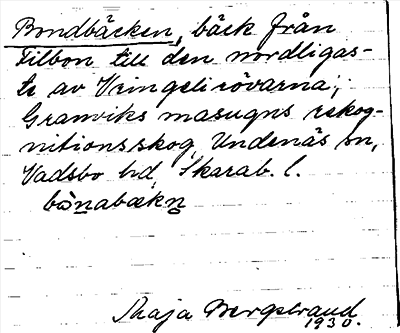 Bondbäcken, bäck från
Tilbon till den nordligas-
te av Vringelirövarna;
Granviks masugns rekog-
nitionsskog, Undenäs sn,
Vadsbo hd, Skarab. l.
bònabækn
Maja Bergstrand
1930.